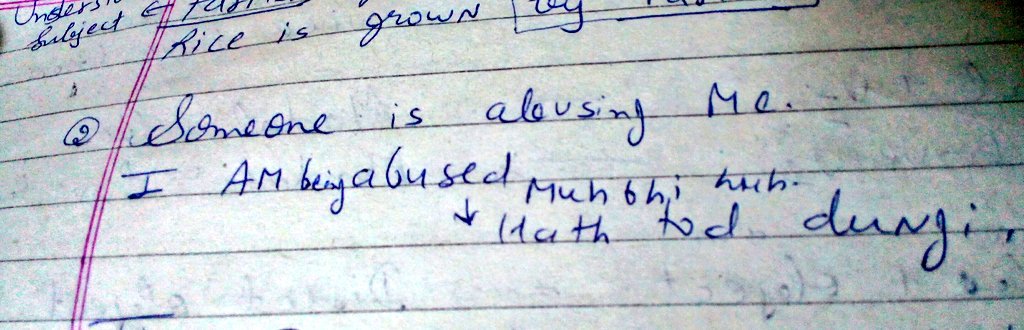 Subject
Rice is grown by
② Someone is abusing Me.
I AM being abused Muh bhi
↓ Hath tod dungi,